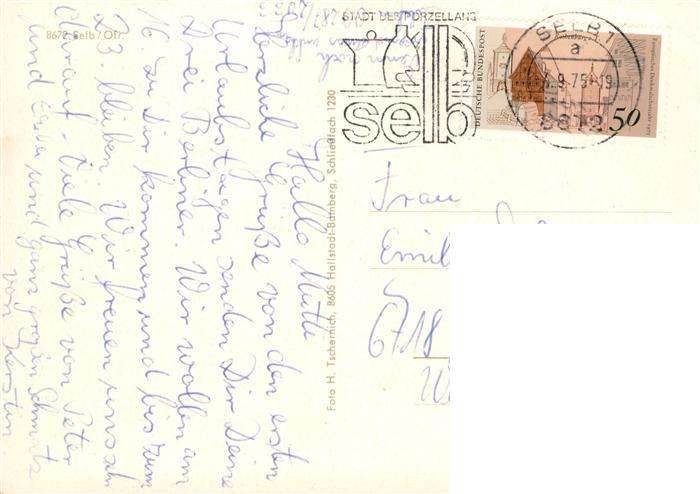 8672 Selb / Ofr.
Hallo Mutti
Herzliche Grüße von den ersten
Urlaubstagen senden Dir Deine
Drei Berliner. Wir wollen am
16. zu Dir kommen und bis zum
23. bleiben. Wir freuen uns sehr
darauf. Viele Grüße von Peter
und und ganz großen Schmatz
von Kerstin.
Foto H. Tschernich, 8605 Hallstadt-Bamberg, Schließfach 1230
STADT DES PORZELLANS
selb
SELB 1
a
.9.75-19
8672
DEUTSCHE BUNDESPOST
Europäisches Denkmalschutzjahr 1975
50
Frau
Emil
6718